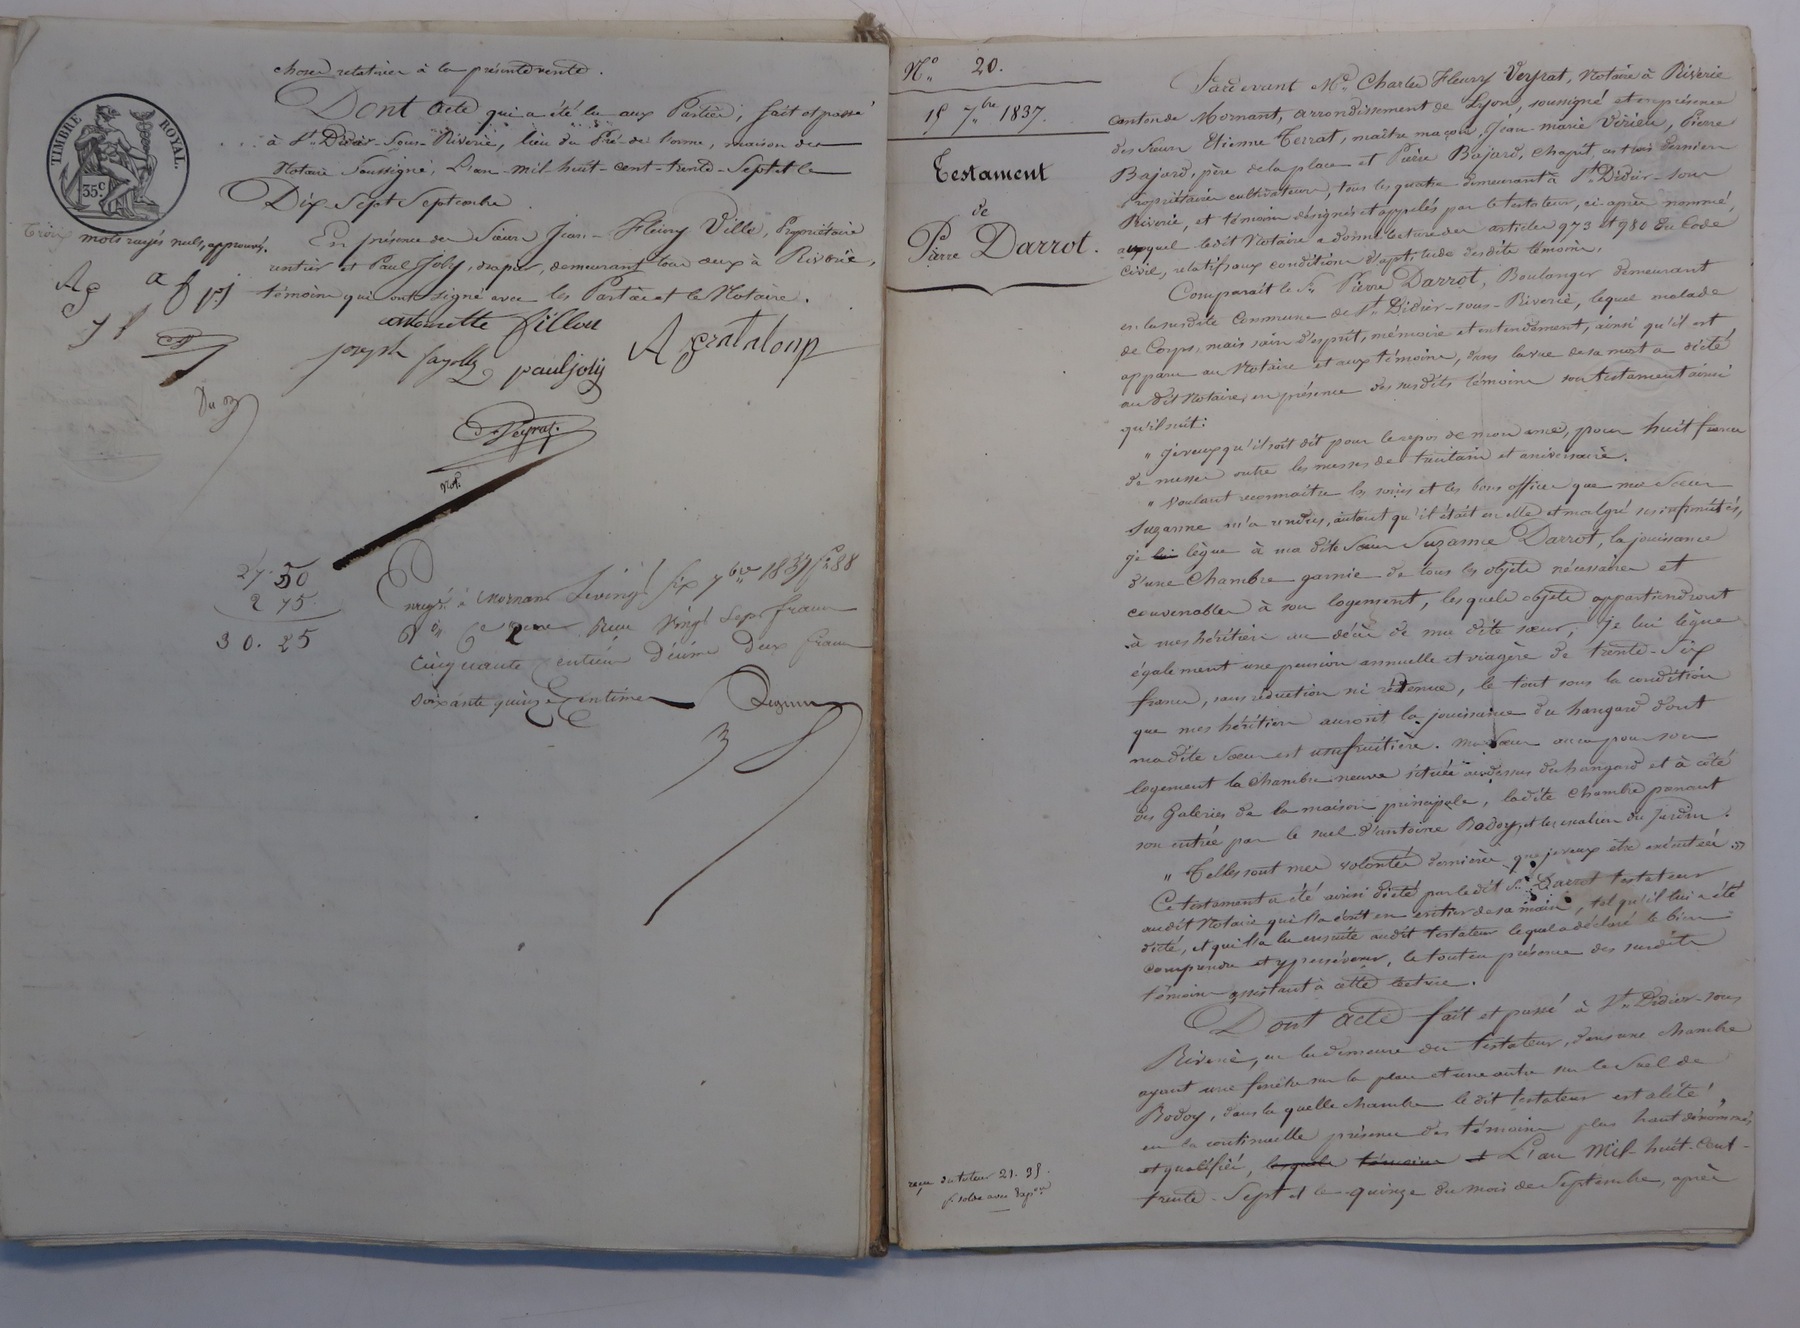 choses relatives à la présente vente.
Dont Acte qui a été lu aux Parties, fait et passé
à St. Didier-Sous-Riverie, lieu du Pré-de l'orme, maison du
Notaire Soussigné, L'an mil-huit-cent-trente-Sept et le
Dix Sept Septembre.
En présence des Sieurs Jean-Fleury Ville, Propriétaire
rentier et Paul Joly, drapier, demeurant tous deux à Riverie,
témoins qui ont signé avec les Parties et le Notaire.
TIMBRE ROYAL.
35 c.
Trois mots rayés nuls, approuvés.
antonette fillon
joseph fayolle
paul joly
A grataloup
Veyrat.
Not.
27. 50
2 75
30. 25
Enregt. à Mornant le vingt six 7bre 1837 fo. 88
Reçu vingt Sept francs
cinquante centimes Décime Deux francs
soixante quinze Centimes
No. 20.
15 7bre 1837.
Testament
de
Pierre Darrot.
Pardevant Me. Charles Fleury Veyrat, Notaire à Riverie
canton de Mornant, arrondissement de Lyon, soussigné et en présence
des sieurs Etienne Terrat, maître maçon, Jean-marie Virieu, Pierre
Bajard, père de la place et Pierre Bajard, Chaput, ces trois derniers
Propriétaires cultivateurs, tous les quatre demeurant à St. Didier-sous
Riverie, et témoins désignés et appelés par le testateur, ci-après nommé,
auquel ledit Notaire a donné lecture des articles 973 et 980 du Code
Civil, relatifs aux conditions d'aptitude desdits témoins.
Comparait le Sr. Pierre Darrot, Boulanger demeurant
en la susdite Commune de St. Didier-sous-Riverie, lequel malade
de Corps, mais sain d'esprit, mémoire et entendement, ainsi qu'il est
apparu au Notaire et aux témoins, dans la vue de sa mort a dicté
au dit Notaire, en présence des susdits témoins son testament ainsi
qu'il suit:
" je veux qu'il soit dit pour le repos de mon ame, pour huit francs
de messes outre les messes de trentain et aniversaire.
" Voulant reconnaître les soins et les bons offices que ma Soeur
Suzanne m'a rendus, autant qu'il était en elle et malgré ses infirmités,
je lui lègue à ma dite Soeur Suzanne Darrot, la jouissance
d'une Chambre garnie de tous les objets nécessaires et
convenables à son logement, lesquels objets appartiendront
à mes héritiers au décès de ma dite soeur; Je lui lègue
également une pension annuelle et viagère de trente-Six
francs, sans réduction ni retenue, le tout sous la condition
que mes héritiers auront la jouissance du hangard dont
madite Soeur est usufruitière. Ma Soeur aura pour son
logement la chambre neuve située au dessus du hangard et à côté
des Galeries de la maison principale, ladite Chambre prenant
son entrée par le suel d'antoine Bodoy, et les escaliers du Jardin.
" Telles sont mes volontés dernières que je veux être exécutées. "
Ce testament a été ainsi dicté par le dit Sr. Darrot testateur
au dit Notaire qui l'a écrit en entier de sa main, tel qu'il lui a été
dicté, et qui l'a lu ensuite au dit testateur lequel a déclaré le bien
comprendre et y persévérer, le tout en présence des susdits
témoins assistant à cette lecture.
Dont Acte fait et passé à St. Didier-sous
Riverie, en la demeure du testateur, dans une chambre
ayant une fenêtre sur la place et une autre sur le Suel de
Bodoy, dans la quelle chambre le dit testateur est alité,
en la continuelle présence des témoins plus haut dénommés
et qualifiés, lesquels témoins et L'an Mil-huit-cent-
trente-Sept et le quinze du mois de Septembre, après